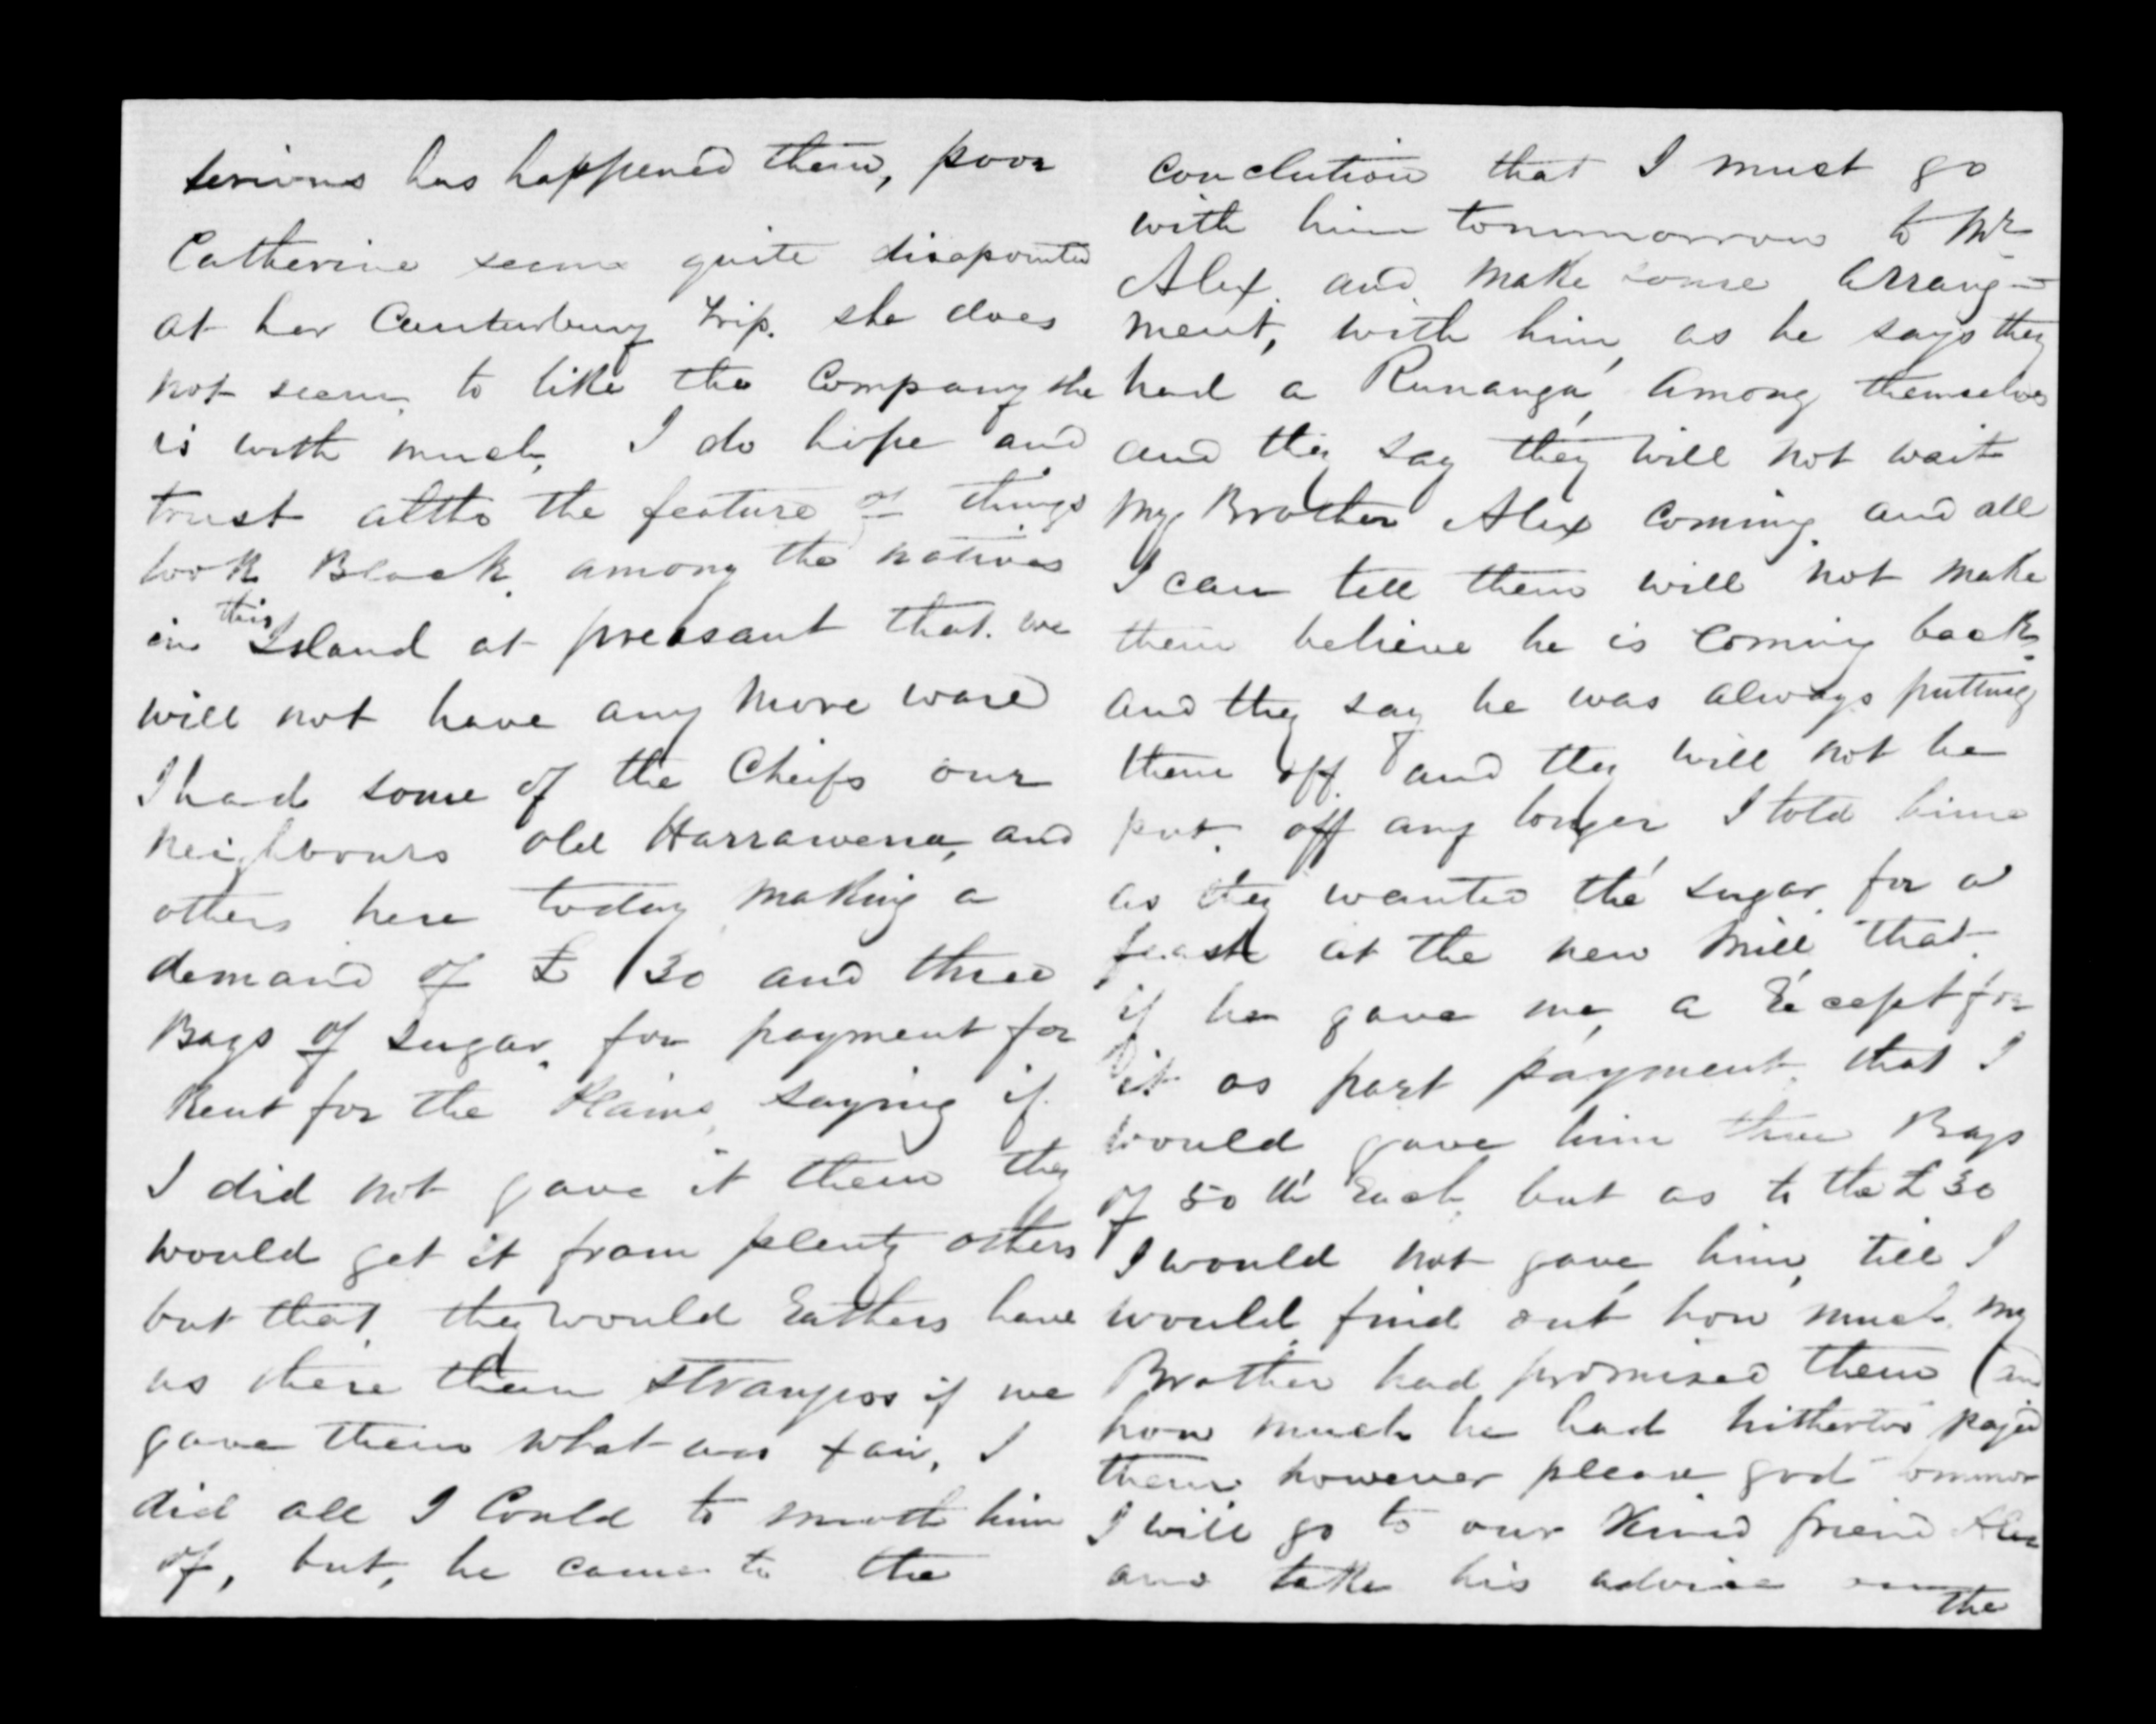 serious has happened them, poor
Catherine seems quite disapointed
at her Canturbury trip. she does
not seem to like the Company she
is with much, I do hope and
trust altho the feature of things
look Black, among the natives
in this Island at preasant that. we
will not have any more ware
I had some of the Cheifs our
neighbours old Harrawena, and
others here today making a
demand of £ 30 and three
Bags of sugar, for payment for
Rent for the Plains, saying if
I did not gave it them they
would get it from plenty others
but that, they would Eathers have
us there than strangers if we
gave them what was fair, I
did all I Could to smoth him
of, but, he came to the
conclution that I must go
with him tommorrow to Mr
Alex. and make some Arrang=
ment, with him, as he says they
had a Runanga, among themselves
and they say they will not wait
my Brother Alex coming, and all
I can tell them will not make
them believe he is coming back,
and they say he was always putting
them off. and they will not be
put off any longer I told him
as they wanted the sugar for a
feast at the new Mill that
if he gave me, a Recept for
it as part payment, that I
would gave him three Bags
of 50 lb Each, but as to the £30
I would not gave him, till I
would find out how much my
Brother had promised them (and
how much he had hitherto payed
them however please god tommor
I will go to our Kind friend Alex
and take his advice on
the